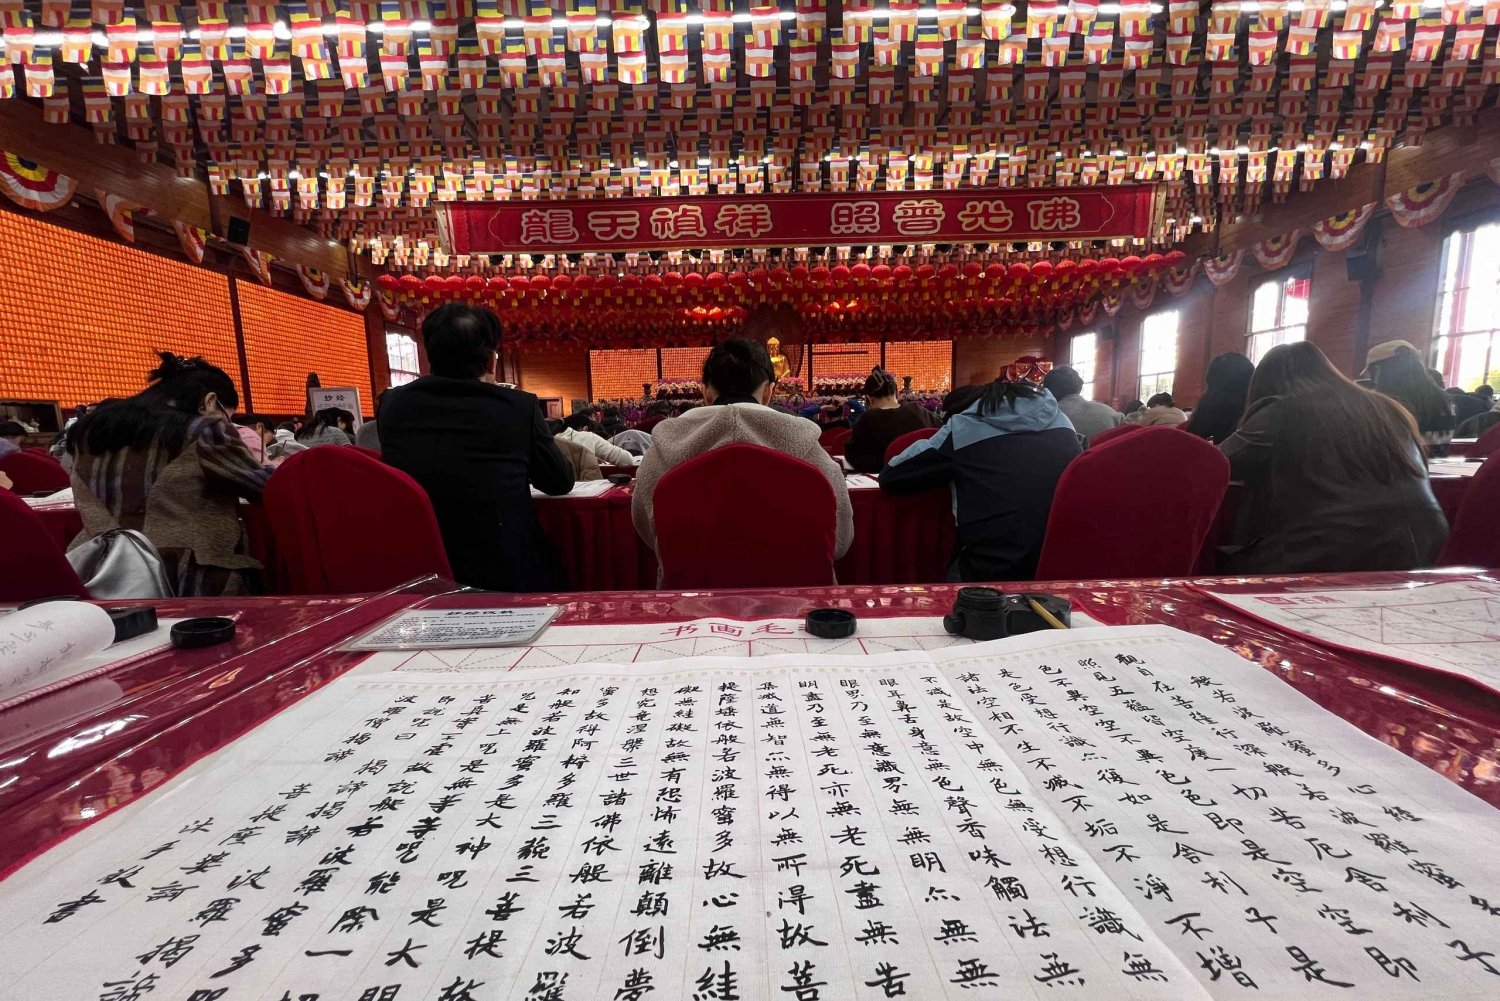 佛光普照 祥禎天龍
抄经
抄经仪轨
书画毛
般若波羅蜜多心經
觀自在菩薩行深般若波羅蜜多
照見五蘊皆空度一切苦厄舍利子
色不異空空不異色色即是空空即
是色受想行識亦復如是舍利子是
諸法空相不生不滅不垢不淨不增
不減是故空中無色無受想行識無
眼耳鼻舌身意無色聲香味觸法無
眼界乃至無意識界無無明亦無無
明盡乃至無老死亦無老死盡無苦
集滅道無智亦無得以無所得故菩
提薩埵依般若波羅蜜多故心無絓
礙無絓礙故無有恐怖遠離顛倒夢
想究竟涅槃三世諸佛依般若波羅
蜜多故得阿耨多羅三藐三菩提故
知般若波羅蜜多是大神呪是大明
呪是無上呪是無等等呪能除一切
苦真實不虛故說般若波羅蜜多呪
即說呪曰 揭諦揭諦 波羅揭諦
波羅僧揭諦 菩提薩婆訶
沐手敬書